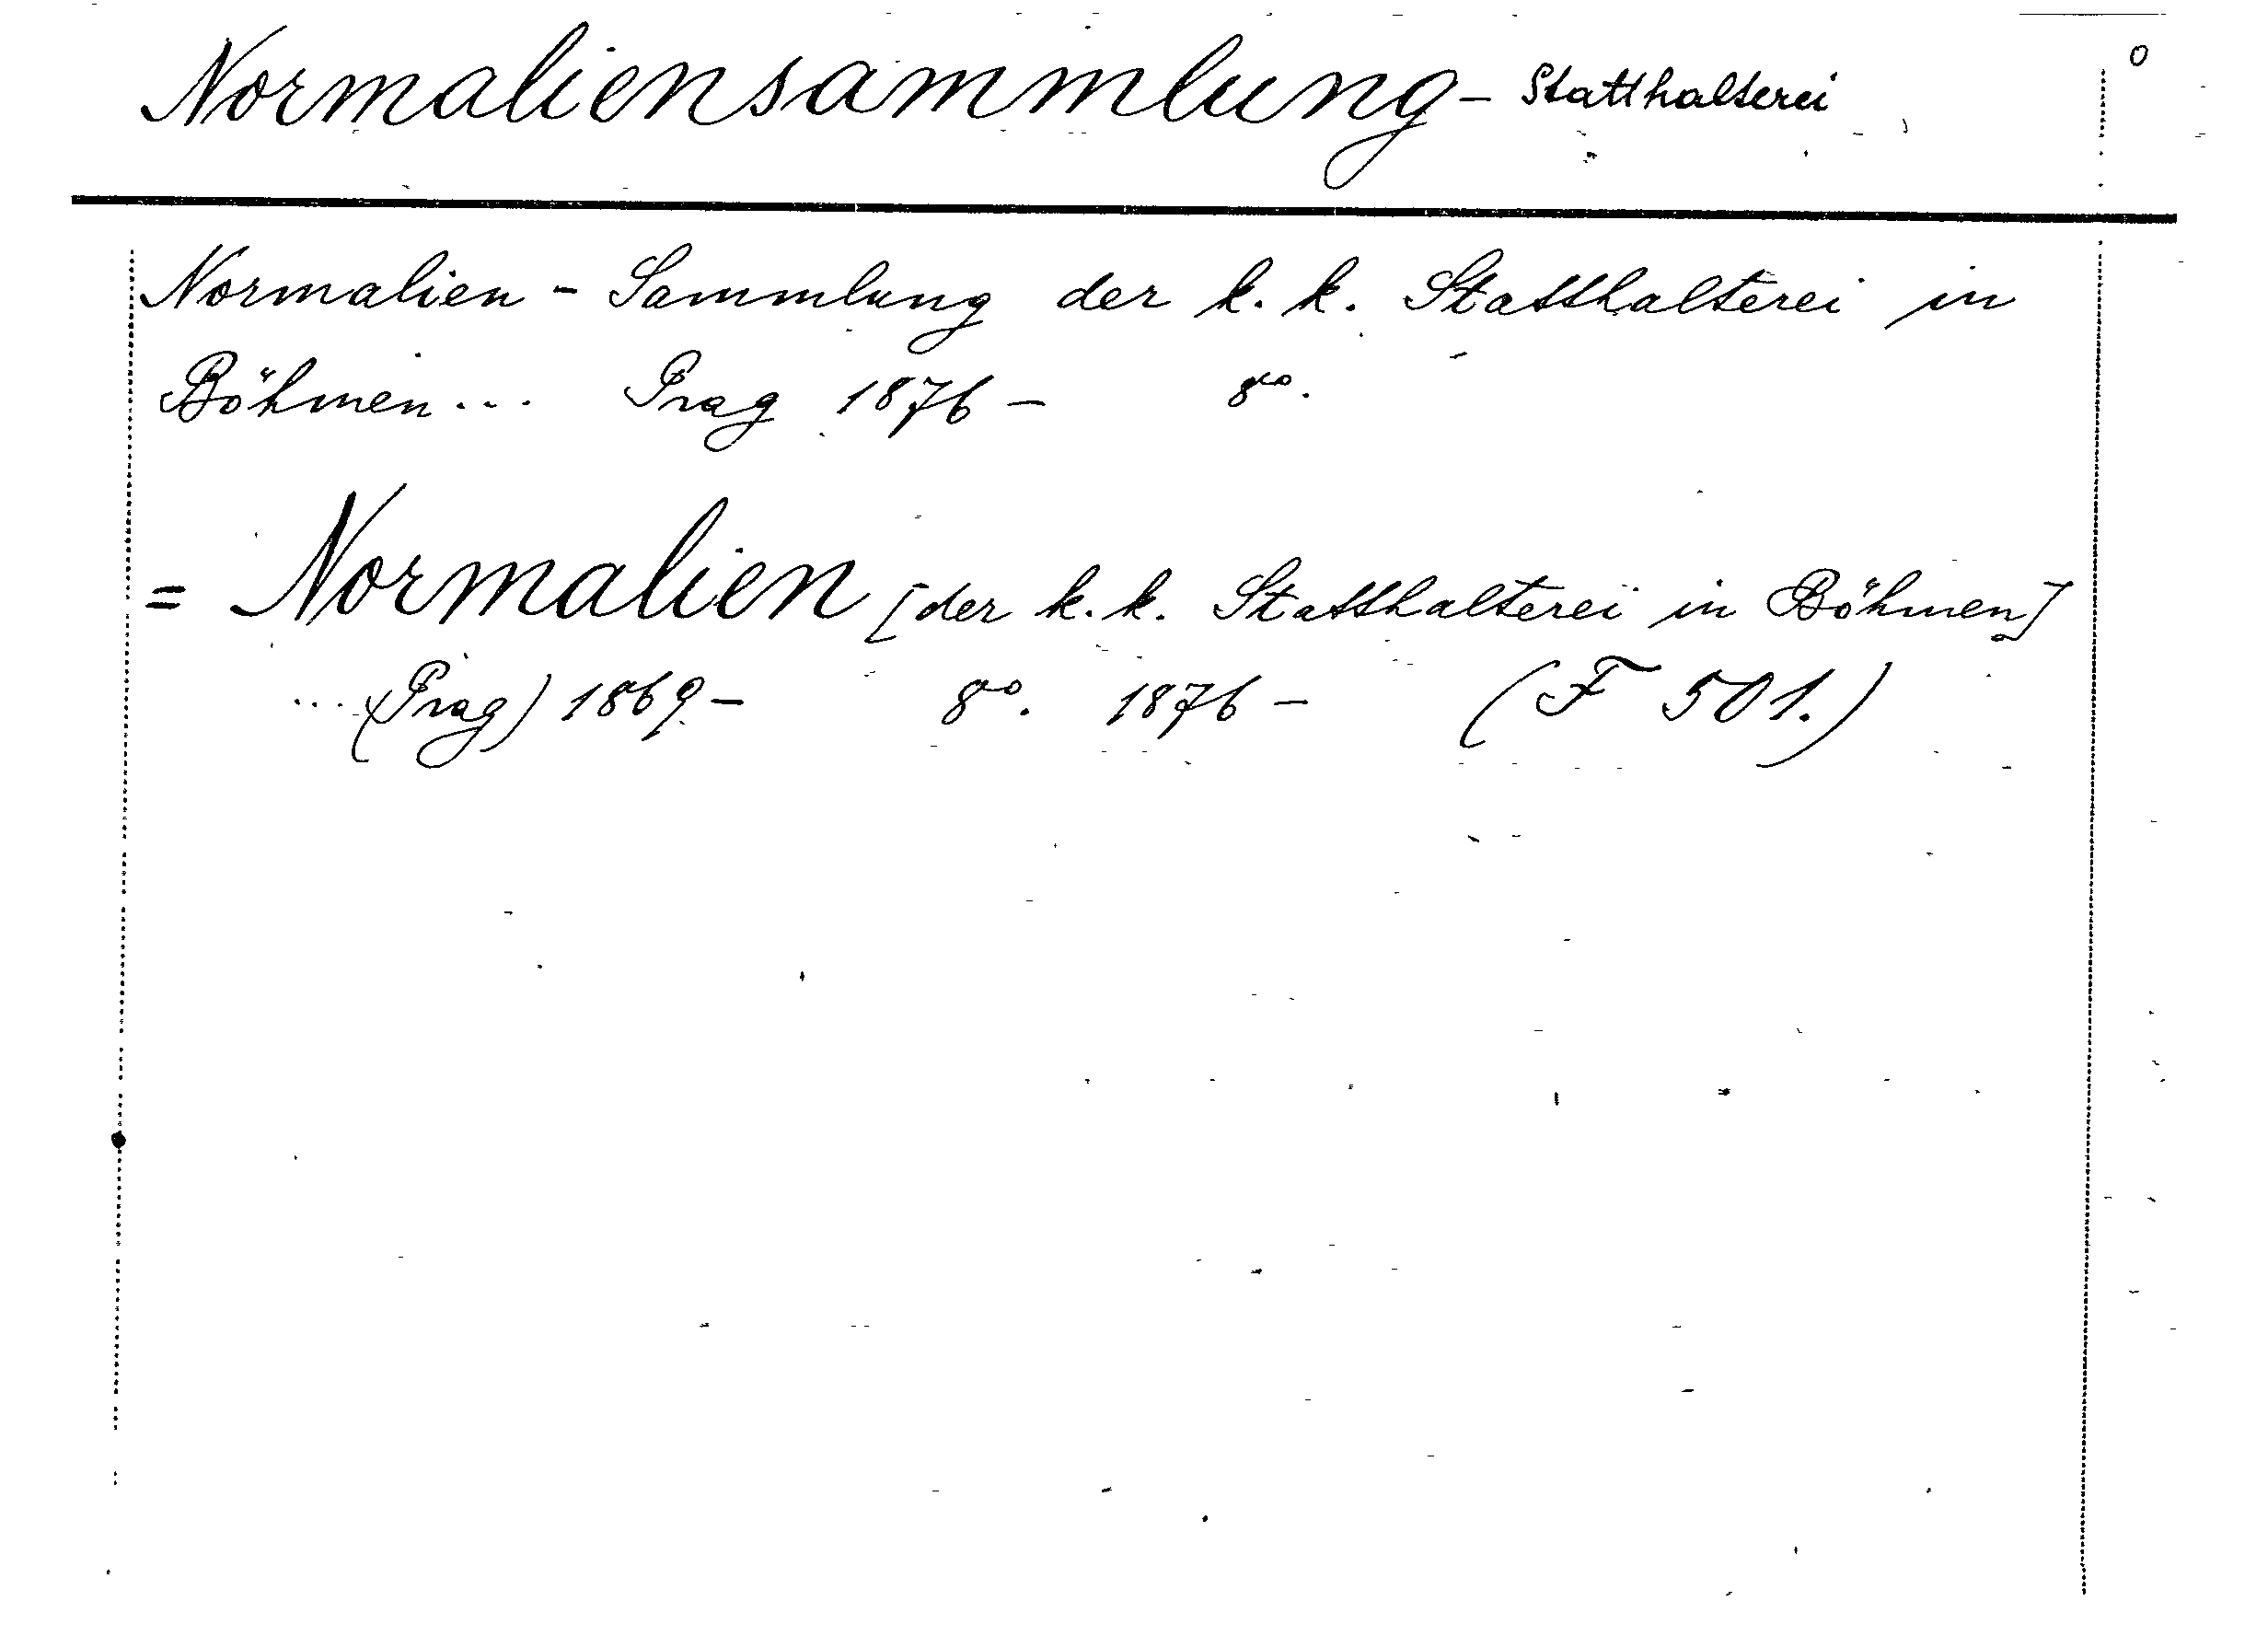 Normaliensammlung - Statthalterei o
Normalien - Sammlung der k. k. Statthalterei in
Böhmen ... Prag 1876 - 8vo.
= Normalien [der k. k. Statthalterei in Böhmen]
... (Prag) 1869 - 8vo. 1876 - (F 501.)